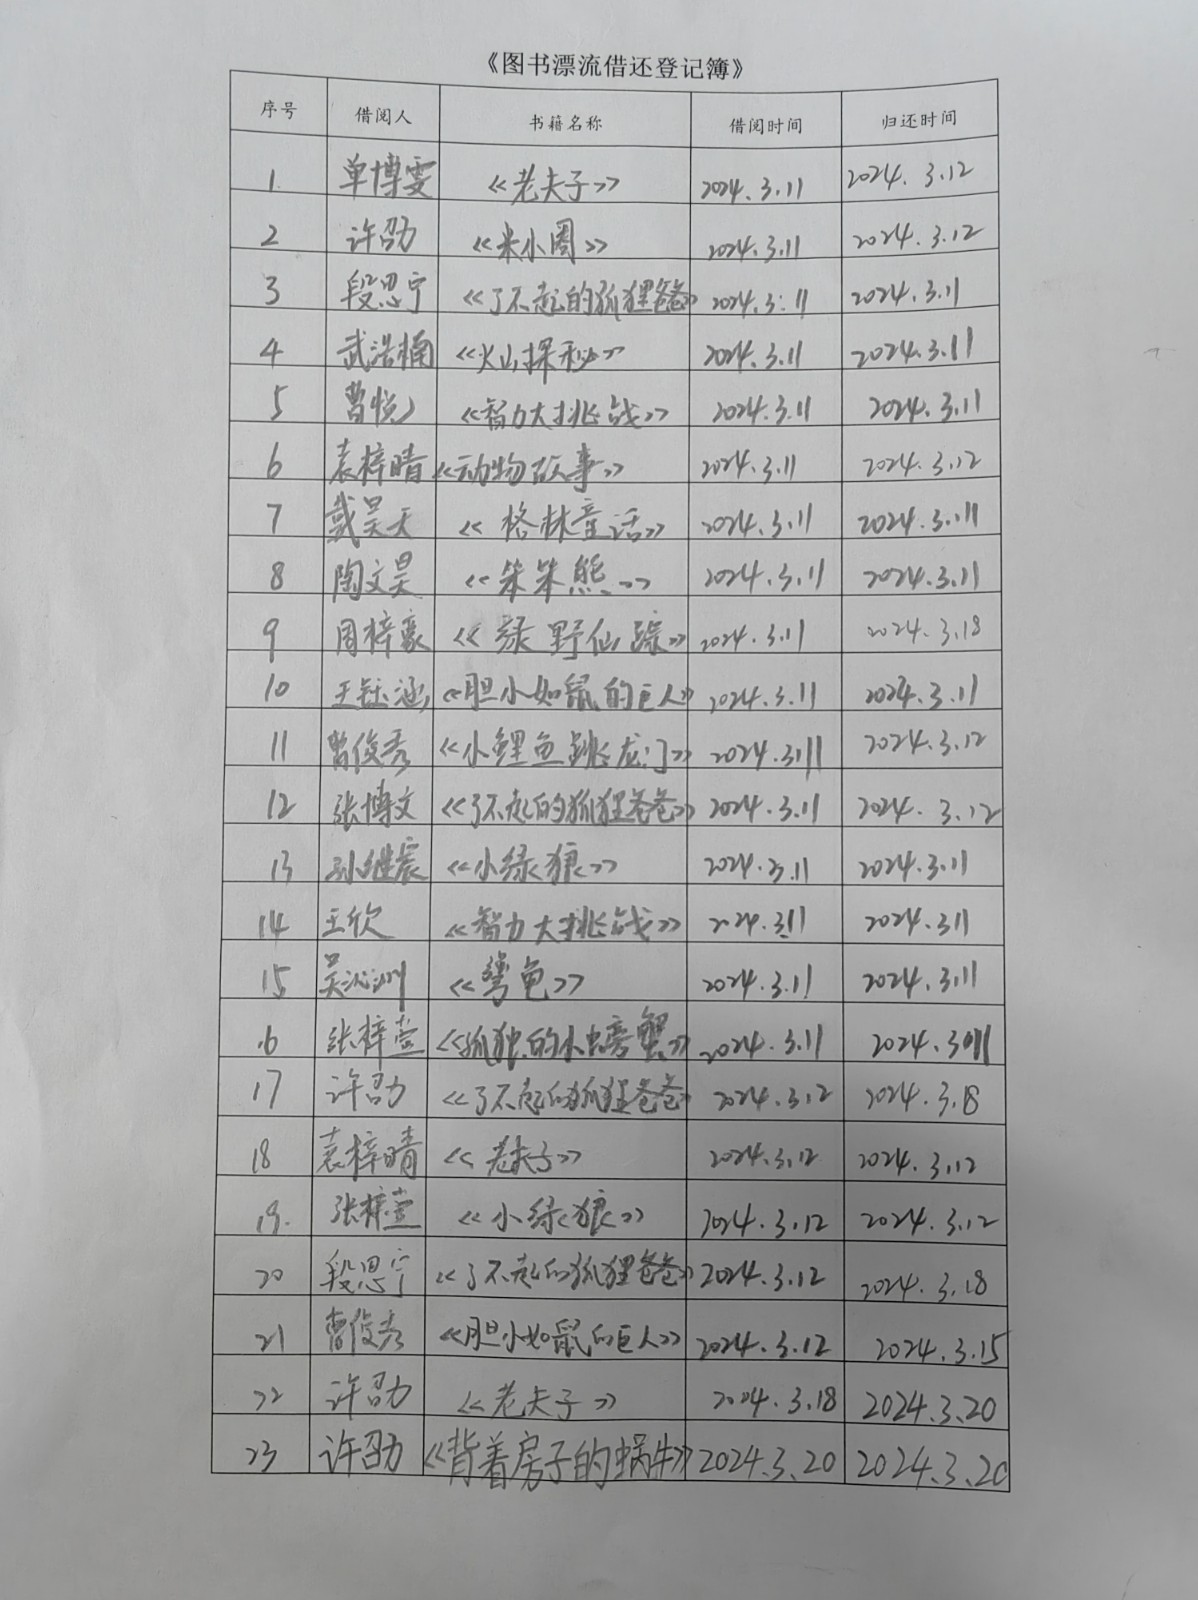 《图书漂流借还登记簿》
序号 借阅人 书籍名称 借阅时间 归还时间
1 单博雯 《老夫子》 2024.3.11 2024.3.12
2 许劭 《米小圈》 2024.3.11 2024.3.12
3 段思宁 《了不起的狐狸爸爸》 2024.3.11 2024.3.11
4 武浩楠 《火山探秘》 2024.3.11 2024.3.11
5 曹悦 《智力大挑战》 2024.3.11 2024.3.11
6 袁梓晴 《动物故事》 2024.3.11 2024.3.12
7 戴昊天 《格林童话》 2024.3.11 2024.3.11
8 陶文昊 《笨笨熊》 2024.3.11 2024.3.11
9 周梓豪 《绿野仙踪》 2024.3.11 2024.3.18
10 王钰涵 《胆小如鼠的巨人》 2024.3.11 2024.3.11
11 曹俊秀 《小鲤鱼跳龙门》 2024.3.11 2024.3.12
12 张博文 《了不起的狐狸爸爸》 2024.3.11 2024.3.12
13 孙继宸 《小绿狼》 2024.3.11 2024.3.11
14 王欣 《智力大挑战》 2024.3.11 2024.3.11
15 吴沁洲 《弯龟》 2024.3.11 2024.3.11
16 张梓萱 《孤独的小螃蟹》 2024.3.11 2024.3.11
17 许劭 《了不起的狐狸爸爸》 2024.3.12 2024.3.18
18 袁梓晴 《老夫子》 2024.3.12 2024.3.12
19. 张梓萱 《小绿狼》 2024.3.12 2024.3.12
20 段思宁 《了不起的狐狸爸爸》 2024.3.12 2024.3.18
21 曹俊秀 《胆小如鼠的巨人》 2024.3.12 2024.3.15
22 许劭 《老夫子》 2024.3.18 2024.3.20
23 许劭 《背着房子的蜗牛》 2024.3.20 2024.3.20